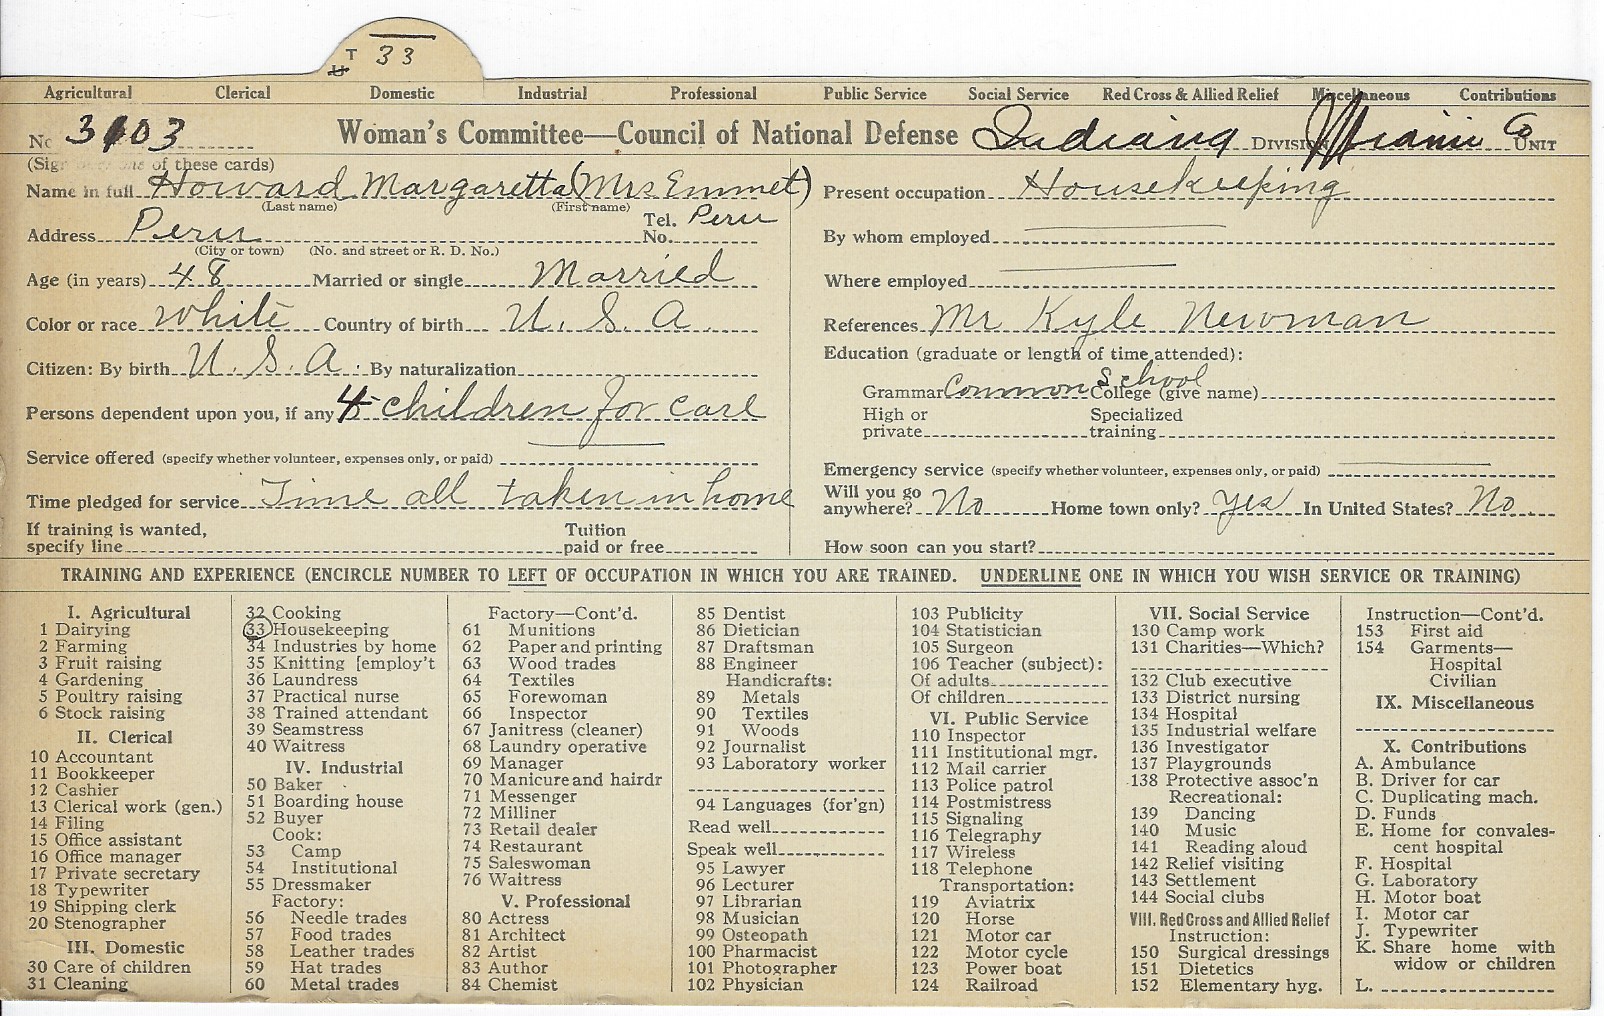 T 33
U
Agricultural Clerical Domestic Industrial Professional Public Service Social Service Red Cross & Allied Relief Miscellaneous Contributions
No 3103 Woman's Committee—Council of National Defense Indiana DIVISION Miami Co UNIT
(Sign of these cards)
Name in full Howard Margaretta (Mrs Emmet)
(Last name) (First name)
Address Peru Tel. No. Peru
(City or town) (No. and street or R. D. No.)
Age (in years) 48 Married or single Married
Color or race White Country of birth U. S. A.
Citizen: By birth U. S. A. By naturalization
Persons dependent upon you, if any 4 children for care
Service offered (specify whether volunteer, expenses only, or paid)
Time pledged for service Time all taken in home
If training is wanted, specify line Tuition paid or free
Present occupation Housekeeping
By whom employed
Where employed
References Mr Kyle Newman
Education (graduate or length of time attended):
Grammar Common School College (give name)
High or private Specialized training
Emergency service (specify whether volunteer, expenses only, or paid)
Will you go anywhere? No Home town only? Yes In United States? No.
How soon can you start?
TRAINING AND EXPERIENCE (ENCIRCLE NUMBER TO LEFT OF OCCUPATION IN WHICH YOU ARE TRAINED. UNDERLINE ONE IN WHICH YOU WISH SERVICE OR TRAINING)
I. Agricultural
1 Dairying
2 Farming
3 Fruit raising
4 Gardening
5 Poultry raising
6 Stock raising
II. Clerical
10 Accountant
11 Bookkeeper
12 Cashier
13 Clerical work (gen.)
14 Filing
15 Office assistant
16 Office manager
17 Private secretary
18 Typewriter
19 Shipping clerk
20 Stenographer
III. Domestic
30 Care of children
31 Cleaning
32 Cooking
33 Housekeeping
34 Industries by home
35 Knitting [employ't
36 Laundress
37 Practical nurse
38 Trained attendant
39 Seamstress
40 Waitress
IV. Industrial
50 Baker
51 Boarding house
52 Buyer
Cook:
53 Camp
54 Institutional
55 Dressmaker
Factory:
56 Needle trades
57 Food trades
58 Leather trades
59 Hat trades
60 Metal trades
Factory—Cont'd.
61 Munitions
62 Paper and printing
63 Wood trades
64 Textiles
65 Forewoman
66 Inspector
67 Janitress (cleaner)
68 Laundry operative
69 Manager
70 Manicure and hairdr
71 Messenger
72 Milliner
73 Retail dealer
74 Restaurant
75 Saleswoman
76 Waitress
V. Professional
80 Actress
81 Architect
82 Artist
83 Author
84 Chemist
85 Dentist
86 Dietician
87 Draftsman
88 Engineer
Handicrafts:
89 Metals
90 Textiles
91 Woods
92 Journalist
93 Laboratory worker
94 Languages (for'gn)
Read well
Speak well
95 Lawyer
96 Lecturer
97 Librarian
98 Musician
99 Osteopath
100 Pharmacist
101 Photographer
102 Physician
103 Publicity
104 Statistician
105 Surgeon
106 Teacher (subject):
Of adults
Of children
VI. Public Service
110 Inspector
111 Institutional mgr.
112 Mail carrier
113 Police patrol
114 Postmistress
115 Signaling
116 Telegraphy
117 Wireless
118 Telephone
Transportation:
119 Aviatrix
120 Horse
121 Motor car
122 Motor cycle
123 Power boat
124 Railroad
VII. Social Service
130 Camp work
131 Charities—Which?
132 Club executive
133 District nursing
134 Hospital
135 Industrial welfare
136 Investigator
137 Playgrounds
138 Protective assoc'n
Recreational:
139 Dancing
140 Music
141 Reading aloud
142 Relief visiting
143 Settlement
144 Social clubs
VIII. Red Cross and Allied Relief
Instruction:
150 Surgical dressings
151 Dietetics
152 Elementary hyg.
Instruction—Cont'd.
153 First aid
154 Garments—
Hospital
Civilian
IX. Miscellaneous
X. Contributions
A. Ambulance
B. Driver for car
C. Duplicating mach.
D. Funds
E. Home for convales-
cent hospital
F. Hospital
G. Laboratory
H. Motor boat
I. Motor car
J. Typewriter
K. Share home with
widow or children
L.